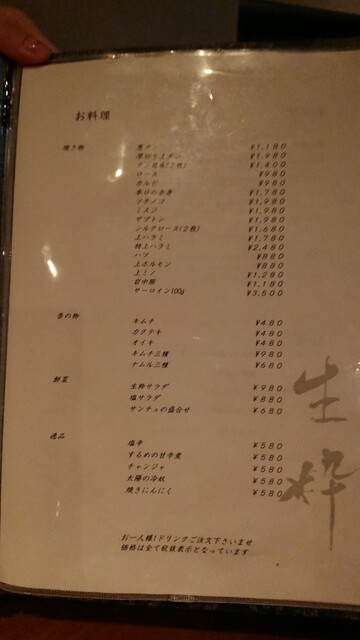 お料理
焼き物
黒タン ¥1,180
厚切り上タン ¥1,980
¥1,400
ロース ¥980
カルビ ¥980
本日の赤身 ¥1,780
ツチノコ ¥1,980
ミスジ ¥1,980
ザブトン ¥1,980
シルクロース(2枚) ¥1,680
上ハラミ ¥1,780
特上ハラミ ¥2,480
ハツ ¥880
上ホルモン ¥880
上ミノ ¥1,280
¥1,180
サーロイン100g ¥3,500
キムチ ¥480
カクテキ ¥480
オイキ ¥480
キムチ三種 ¥980
ナムル三種 ¥680
鮮菜
生粋サラダ ¥980
塩サラダ ¥880
サンチュの盛合せ ¥680
逸品
塩辛 ¥580
するめの甘辛煮 ¥580
チャンジャ ¥580
太陽の冷奴 ¥580
焼きにんにく ¥580
生粋
お一人様1ドリンクご注文下さいませ
価格は全て税抜表示となっています